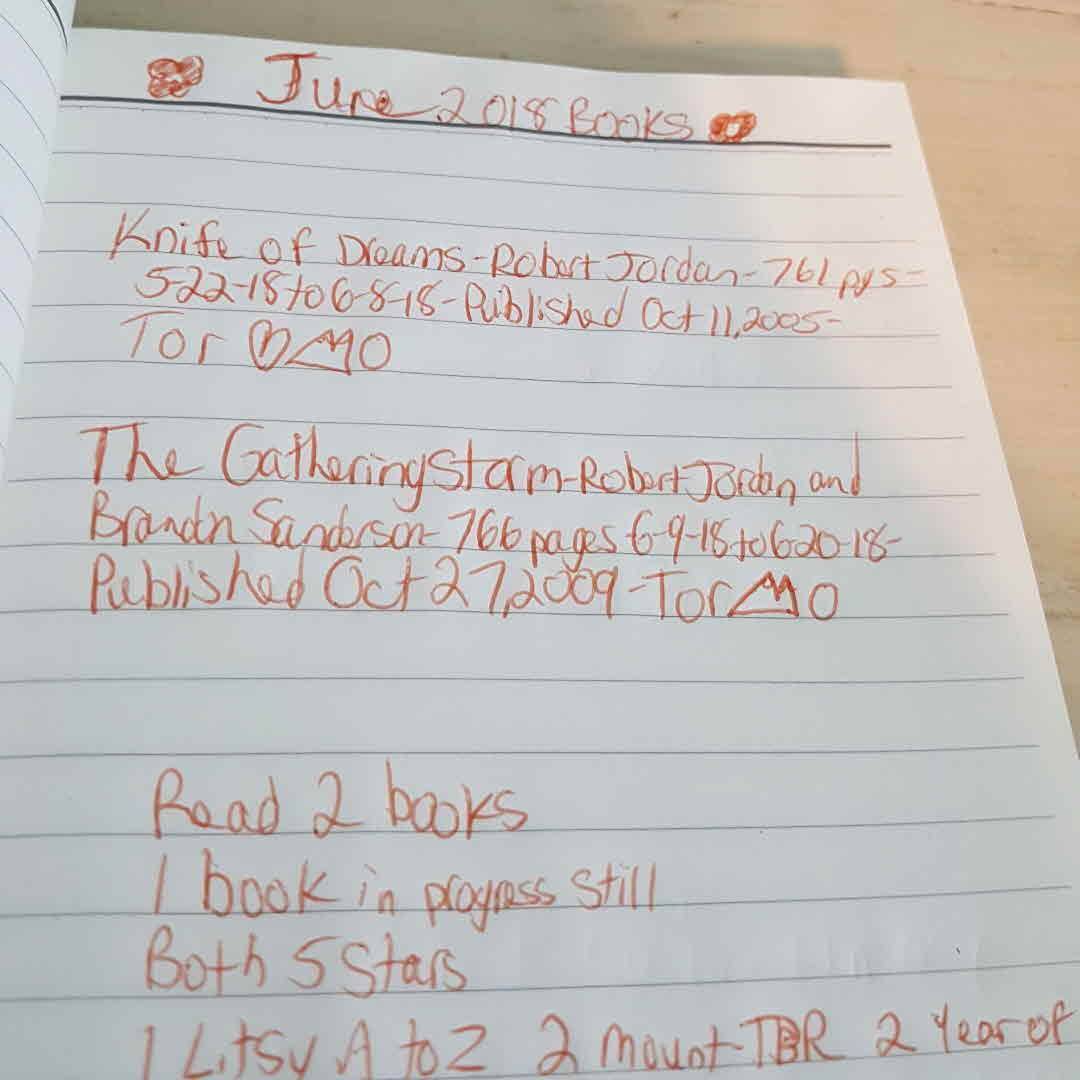 June 2018 Books
Knife of Dreams-Robert Jordan-761 pgs-
5-22-18 to 6-8-18-Published Oct 11, 2005-
Tor
The Gathering Storm-Robert Jordan and
Brandon Sanderson-766 pages 6-9-18 to 6-20-18-
Published Oct 27, 2009-Tor
Read 2 books
1 book in progress still
Both 5 Stars
1 Litsy A to Z 2 Mount TBR 2 Year of